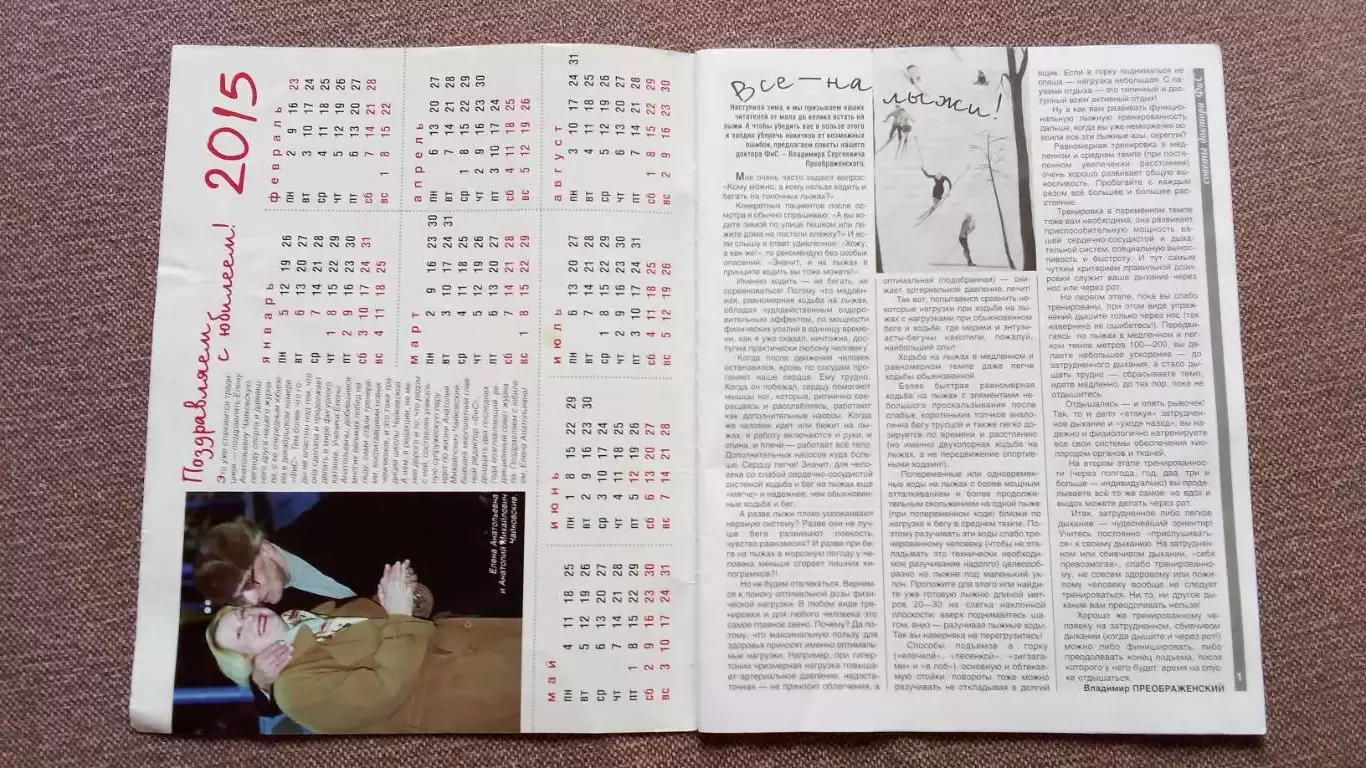 Поздравляем
с юбилеем!
2015
Это уже становится тради-
цией — поздравлять Елену
Анатольевну Чайковскую,
легенду спорта и давниш-
него друга нашего журна-
ла, с ее очередным юбиле-
ем в декабрьском номере
«ФиС». Тем более, что го-
ды не властны над тем, что
она сделала и продолжает
делать в мире фигурного
катания. Ученики Елены
Анатольевны, добившиеся
многих великих побед на
льду, сами стали тренера-
ми, воспитавшими новых
чемпионов, и это тоже тра
диция школы Чайковской
А нам, в редакции, не ме-
нее дорого и то, что рядом
с ней, составляя уникаль-
ную супружескую пару,
идет по жизни Анатолий
Михайлович Чайковский,
бывший многолетний глав
ный редактор «ФиС»,
Поздравляем с юбиле
ем, Елена Анатольевна!
Елена Анатольевна
и Анатолий Михайлович
Чайковские
январь
пн 5 12 19 26
вт 6 13 20 27
ср 7 14 21 28
чт 1 8 15 22 29
пт 2 9 16 23 30
сб 3 10 17 24 31
вс 4 11 18 25
февраль
пн 2 9 16 23
вт 3 10 17 24
ср 4 11 18 25
чт 5 12 19 26
пт 6 13 20 27
сб 7 14 21 28
вс 1 8 15 22
март
пн 2 9 16 23 30
вт 3 10 17 24 31
ср 4 11 18 25
чт 5 12 19 26
пт 6 13 20 27
сб 7 14 21 28
вс 1 8 15 22 29
апрель
пн 6 13 20 27
вт 7 14 21 28
ср 1 8 15 22 29
чт 2 9 16 23 30
пт 3 10 17 24
сб 4 11 18 25
вс 5 12 19 26
май
пн 4 11 18 25
вт 5 12 19 26
ср 6 13 20 27
чт 7 14 21 28
пт 1 8 15 22 29
сб 2 9 16 23 30
вс 3 10 17 24 31
июнь
пн 1 8 15 22 29
вт 2 9 16 23 30
ср 3 10 17 24
чт 4 11 18 25
пт 5 12 19 26
сб 6 13 20 27
вс 7 14 21 28
июль
пн 6 13 20 27
вт 7 14 21 28
ср 1 8 15 22 29
чт 2 9 16 23 30
пт 3 10 17 24 31
сб 4 11 18 25
вс 5 12 19 26
август
пн 3 10 17 24 31
вт 4 11 18 25
ср 5 12 19 26
чт 6 13 20 27
пт 7 14 21 28
сб 1 8 15 22 29
вс 2 9 16 23 30
Все — на лыжи!
Наступила зима, и мы призываем наших
читателей от мала до велика встать на
лыжи. А чтобы убедить вас в пользе этого
и заодно уберечь новичков от возможных
ошибок, предлагаем советы нашего
доктора ФиС — Владимира Сергеевича
Преображенского.
Мне очень часто задают вопрос:
«Кому можно, а кому нельзя ходить и
бегать на гоночных лыжах?»
Конкретных пациентов после ос-
мотра я обычно спрашиваю: «А вы хо-
дите зимой по улице пешком или ле-
жите дома на постели вележку?» И ес-
ли слышу в ответ удивленное: «Хожу,
а как же!» то рекомендую без особых
опасений: «Значит, и на лыжах в
принципе ходить вы тоже можете!»
Именно ходить — не бегать, не
соревноваться! Потому что медлен-
ная, равномерная ходьба на лыжах,
обладая чудодейственным оздоро-
вительным эффектом, по мощности
физических усилий в единицу време-
ни, как я уже сказал, ничтожна, дос-
тупна практически любому человеку.
Когда после движения человек
остановится, кровь по сосудам про-
гоняет наше сердце. Ему трудно.
Когда он побежал, сердцу помогают
мышцы ног, которые, ритмично сок-
ращаясь и расслабляясь, работают
как дополнительные насосы. Когда
же человек идет или бежит на лы-
жах, в работу включаются и руки, и
спина, и плечи — работает всё тело.
Дополнительных насосов куда боль-
ше. Сердцу легче! Значит, для чело-
века со слабой сердечно-сосудистой
системой ходьба и бег на лыжах еще
«мягче» и надежнее, чем обыкновен-
ные ходьба и бег.
А разве лыжи плохо успокаивают
нервную систему? Разве они не луч-
ше бега развивают ловкость,
чувство равновесия? И разве при бе-
ге на лыжах в морозную погоду у че-
ловека меньше сгорает лишних ки-
лограммов?!
Но не будем отвлекаться. Вернем-
ся к поиску оптимальной дозы физи-
ческой нагрузки. В любом виде тре-
нировки и для любого человека это
самое главное звено. Почему? Да по-
тому, что максимальную пользу для
здоровья приносят именно оптималь-
ные нагрузки. Например, при гипер-
тонии чрезмерная нагрузка повыша-
ет артериальное давление, недоста-
точная — не приносит облегчения, а
оптимальная (подобранная) — сни-
жает артериальное давление, лечит!
Так вот, попытаемся сравнить не-
которые нагрузки при ходьбе на лы-
жах с нагрузками при обыкновенном
беге и ходьбе, где медики и энтузи-
асты-бегуны накопили, пожалуй,
наибольший опыт.
Ходьба на лыжах в медленном и
равномерном темпе даже легче
ходьбы обыкновенной.
Более быстрая равномерная
ходьба на лыжах с элементами не-
большого проскальзывания после
слабых, коротких толчков анало-
гична бегу трусцой и также легко до-
зируется по времени и расстоянию
(но именно двухопорная ходьба на
лыжах, а не передвижение спортив-
ными ходами!).
Попеременные или одновремен-
ные ходы на лыжах с более мощным
отталкиванием и более продолжи-
тельным скольжением на одной лыже
(при попеременном ходе) близки по
нагрузке к бегу в среднем темпе. По-
этому разучивать эти ходы слабо тре-
нированному человеку (чтобы не отк-
ладывать это технически необходи-
мое разучивание надолго) целесооб-
разно на лыжне под маленький ук-
лон. Проложите для этого или найди-
те уже готовую лыжню длиной мет-
ров 20—30 на слегка наклонной
плоскости: вверх поднимайтесь ша-
гом, вниз — разучивая лыжные ходы.
Так вы наверняка не перегрузитесь!
Способы подъемов в горку
(«елочкой», «лесенкой», «зигзага-
ми» и «в лоб»), основную и обтекае-
мую стойки, повороты тоже можно
разучивать не откладывая в долгий
ящик. Если в горку подниматься не
спеша — нагрузка небольшая. С па-
узами отдыха — это типичный и дос-
тупный всем активный отдых!
Ну а как вам развивать функцио-
нальную лыжную тренированность
дальше, когда вы уже немножечко ос-
воили все эти лыжные азы, окрепли?
Равномерная тренировка в мед-
ленном и среднем темпе (при посте-
пенном увеличении расстояния)
очень хорошо развивает общую вы-
носливость. Пробегайте с каждым
разом всё большее и большее рас-
стояние.
Тренировка в переменном темпе
тоже вам необходима: она развивает
приспособительную мощность ва-
шей сердечно-сосудистой и дыха-
тельной систем, специальную вынос-
ливость и быстроту. И тут самым
чутким критерием правильной дози-
ровки служит ваше дыхание через
нос или через рот.
На первом этапе, пока вы слабо
тренированы, при этом виде упраж-
нений дышите только через нос (так
наверняка не ошибетесь!). Передви-
гаясь на лыжах в медленном и лег-
ком темпе метров 100—200, вы де-
лаете небольшое ускорение — до
затрудненного дыхания, а стало ды-
шать трудно — сбрасываете темп,
идете медленно, до тех пор, пока не
отдышитесь.
Отдышались — и опять рывочек!
Так, то и дело «атакуя» затруднен-
ное дыхание и «уходя назад», вы на-
дежно и физиологично натренируете
все свои системы обеспечения кис-
лородом органов и тканей.
На втором этапе тренированнос-
ти (через полгода, год, два, три и
больше — индивидуально) вы проде-
лываете всё то же самое, но вдох и
выдох можете делать через рот.
Итак, затрудненное либо легкое
дыхание — чудеснейший ориентир!
Учитесь постоянно «прислушивать-
ся» к своему дыханию. На затруднен-
ном или сбивчивом дыхании, «себя
превозмогая», слабо тренированно-
му, не совсем здоровому или пожи-
лому человеку вообще не следует
тренироваться. Ни то, ни другое ды-
хание вам преодолевать нельзя!
Хорошо же тренированному че-
ловеку на затрудненном, сбивчивом
дыхании (когда дышите и через рот!)
можно либо финишировать, либо
преодолевать конец подъема, после
которого у него будет время на спус-
ке отдышаться.
Владимир ПРЕОБРАЖЕНСКИЙ
советы доктора ФиС
1